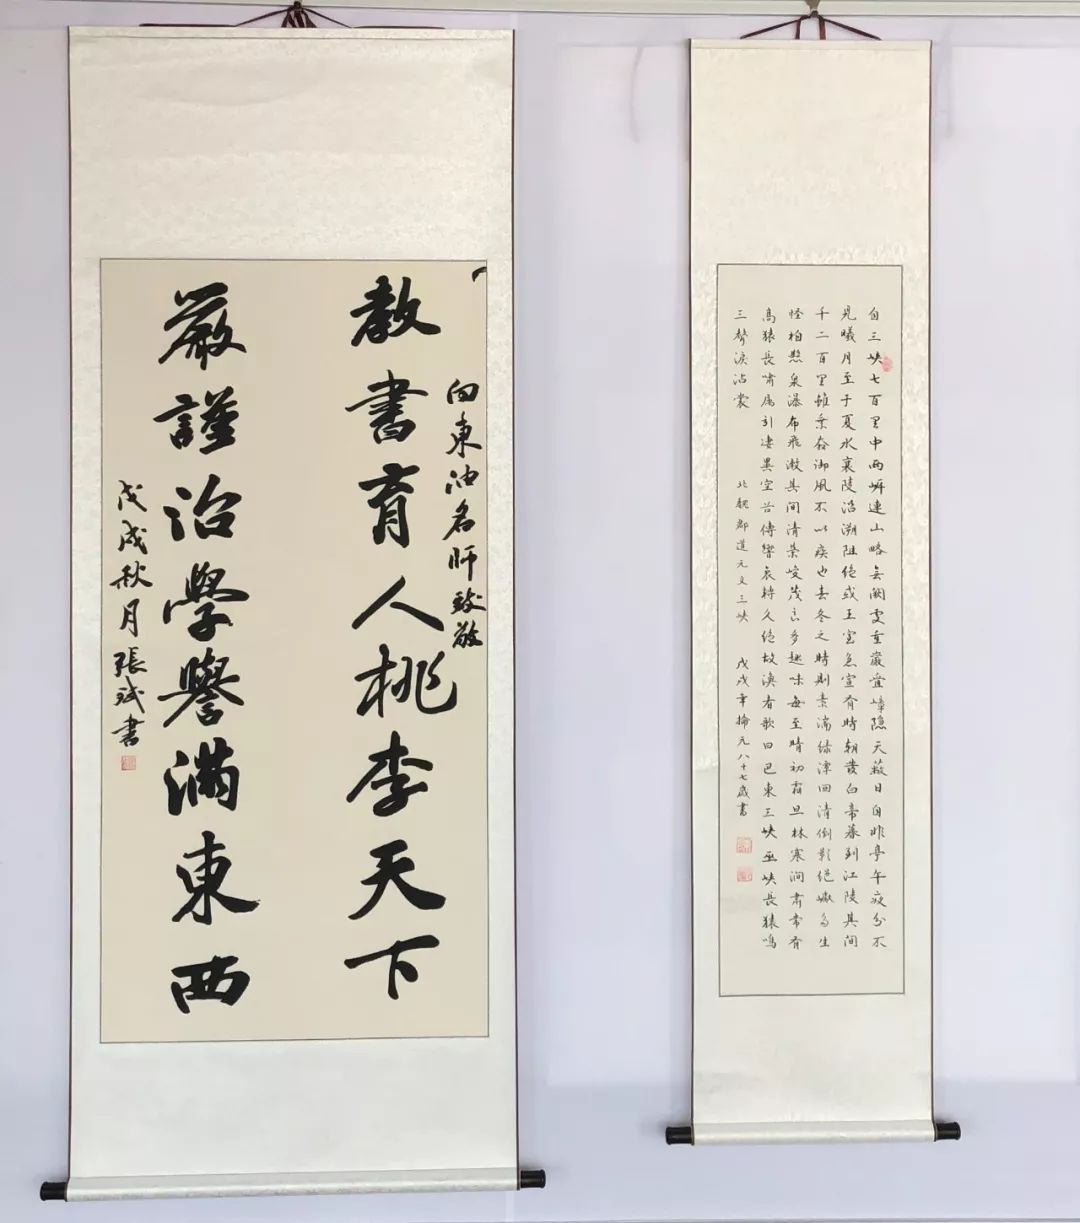 向東油名師致敬
教書育人桃李天下
嚴謹治學譽滿東西
戊戌秋月張斌書
自三峽七百里中兩岸連山略無闕處重巖疊嶂隱天蔽日自非亭午夜分不
見曦月至于夏水襄陵沿溯阻絕或王命急宣有時朝發白帝暮到江陵其間
千二百里雖乘奔御風不以疾也春冬之時則素湍綠潭回清倒影絕巘多生
怪柏懸泉瀑布飛漱其間清榮峻茂良多趣味每至晴初霜旦林寒澗肅常有
高猿長嘯屬引凄異空谷傳響哀轉久絕故漁者歌曰巴東三峽巫峽長猿鳴
三聲淚沾裳 北魏酈道元文三峽 戊戌年掄元八十七歲書